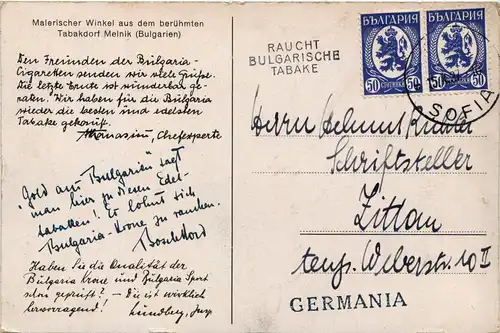 Malerischer Winkel aus dem berühmten
Tabakdorf Melnik (Bulgarien)
Den Freunden der Bulgaria-
Cigaretten senden wir viele Grüße.
Die letzte Ernte ist wunderbar ge-
raten. Wir haben für die Bulgaria
wieder die besten und edelsten
Tabake gekauft.
Athanasiu, Chefexperte
"Gold aus Bulgarien" sagt
man hier zu diesen Edel-
tabaken! Es lohnt sich
Bulgaria-Krone zu rauchen.
Haben Sie die Qualität der
Bulgaria Krone und Bulgaria Sport
schon geprüft? – Die ist wirklich
hervorragend!
Lundberg, Insp
RAUCHT
BULGARISCHE
TABAKE
БЪЛГАРИЯ
50 СТОТИНКИ 50
БЪЛГАРИЯ
50 СТОТИНКИ 50
SOFIA
Herrn Helmut
Schriftsteller
Zittau
Weberstr. 10 II
GERMANIA